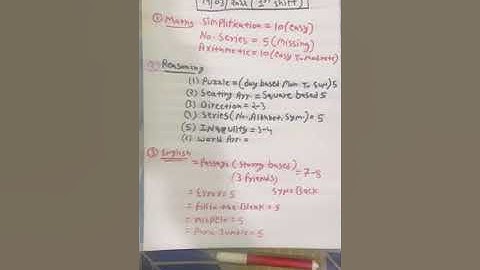 (1st shift)
① Maths Simplification = 10 (easy)
No. Series = 5 (missing)
Arithmetic = 10 (easy To moderate)
Reasoning
(1) Puzzle = (day based Mon To Sun) 5
(2) Seating Arr. = Square based 5
(3) Direction = 2-3
(4) Series (No. Alphabet, Sym.) = 5
(5) Inequility = 3-4
(6) World Arr =
③ English
= Passage (Storey based) = 7-8
(3 friends)
= Error = 5
= Fill in the Blank = 5
= = 5
= Para Jumble = 5